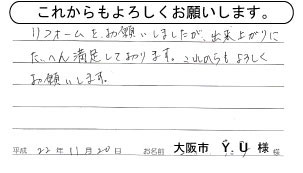 これからもよろしくお願いします。
リフォームをお願いしましたが、出来上がりに
たいへん満足しております。これからもよろしく
お願いします。
平成 22年 11月 20日 お名前 大阪市 Y.U 様 様